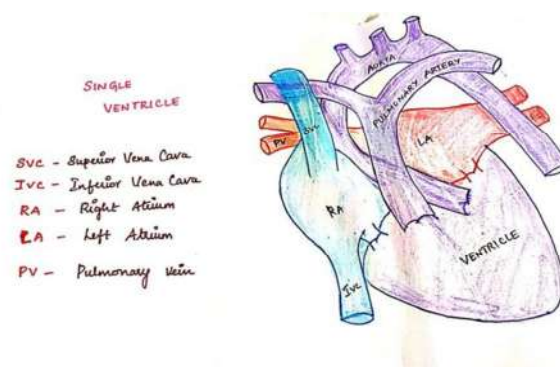 SINGLE
VENTRICLE
SVC - Superior Vena Cava
IVC - Inferior Vena Cava
RA - Right Atrium
LA - Left Atrium
PV - Pulmonary Vein
AORTA
PULMONARY ARTERY
SVC
PV
LA
RA
VENTRICLE
IVC